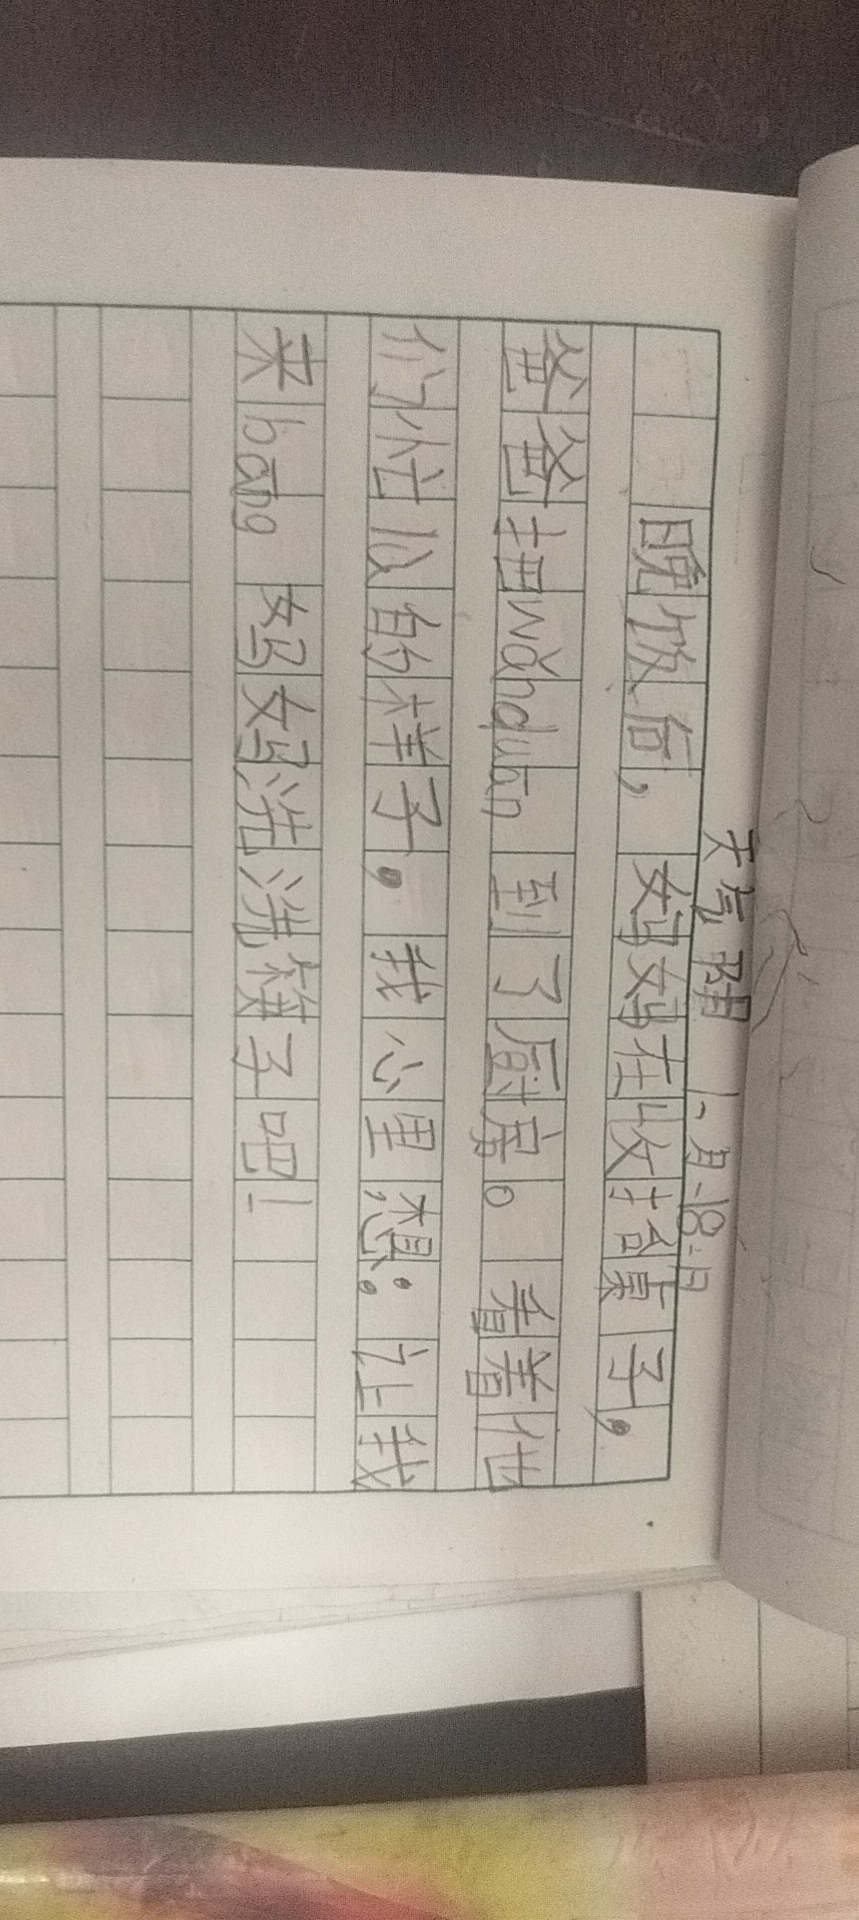 天气 阴 1、月-18-日
晚饭后，妈妈在收拾桌子，
爸爸把wǎnduān到了厨房。看着他
们忙以的样子，我心里想：让我
来bāng妈妈洗洗筷子吧！